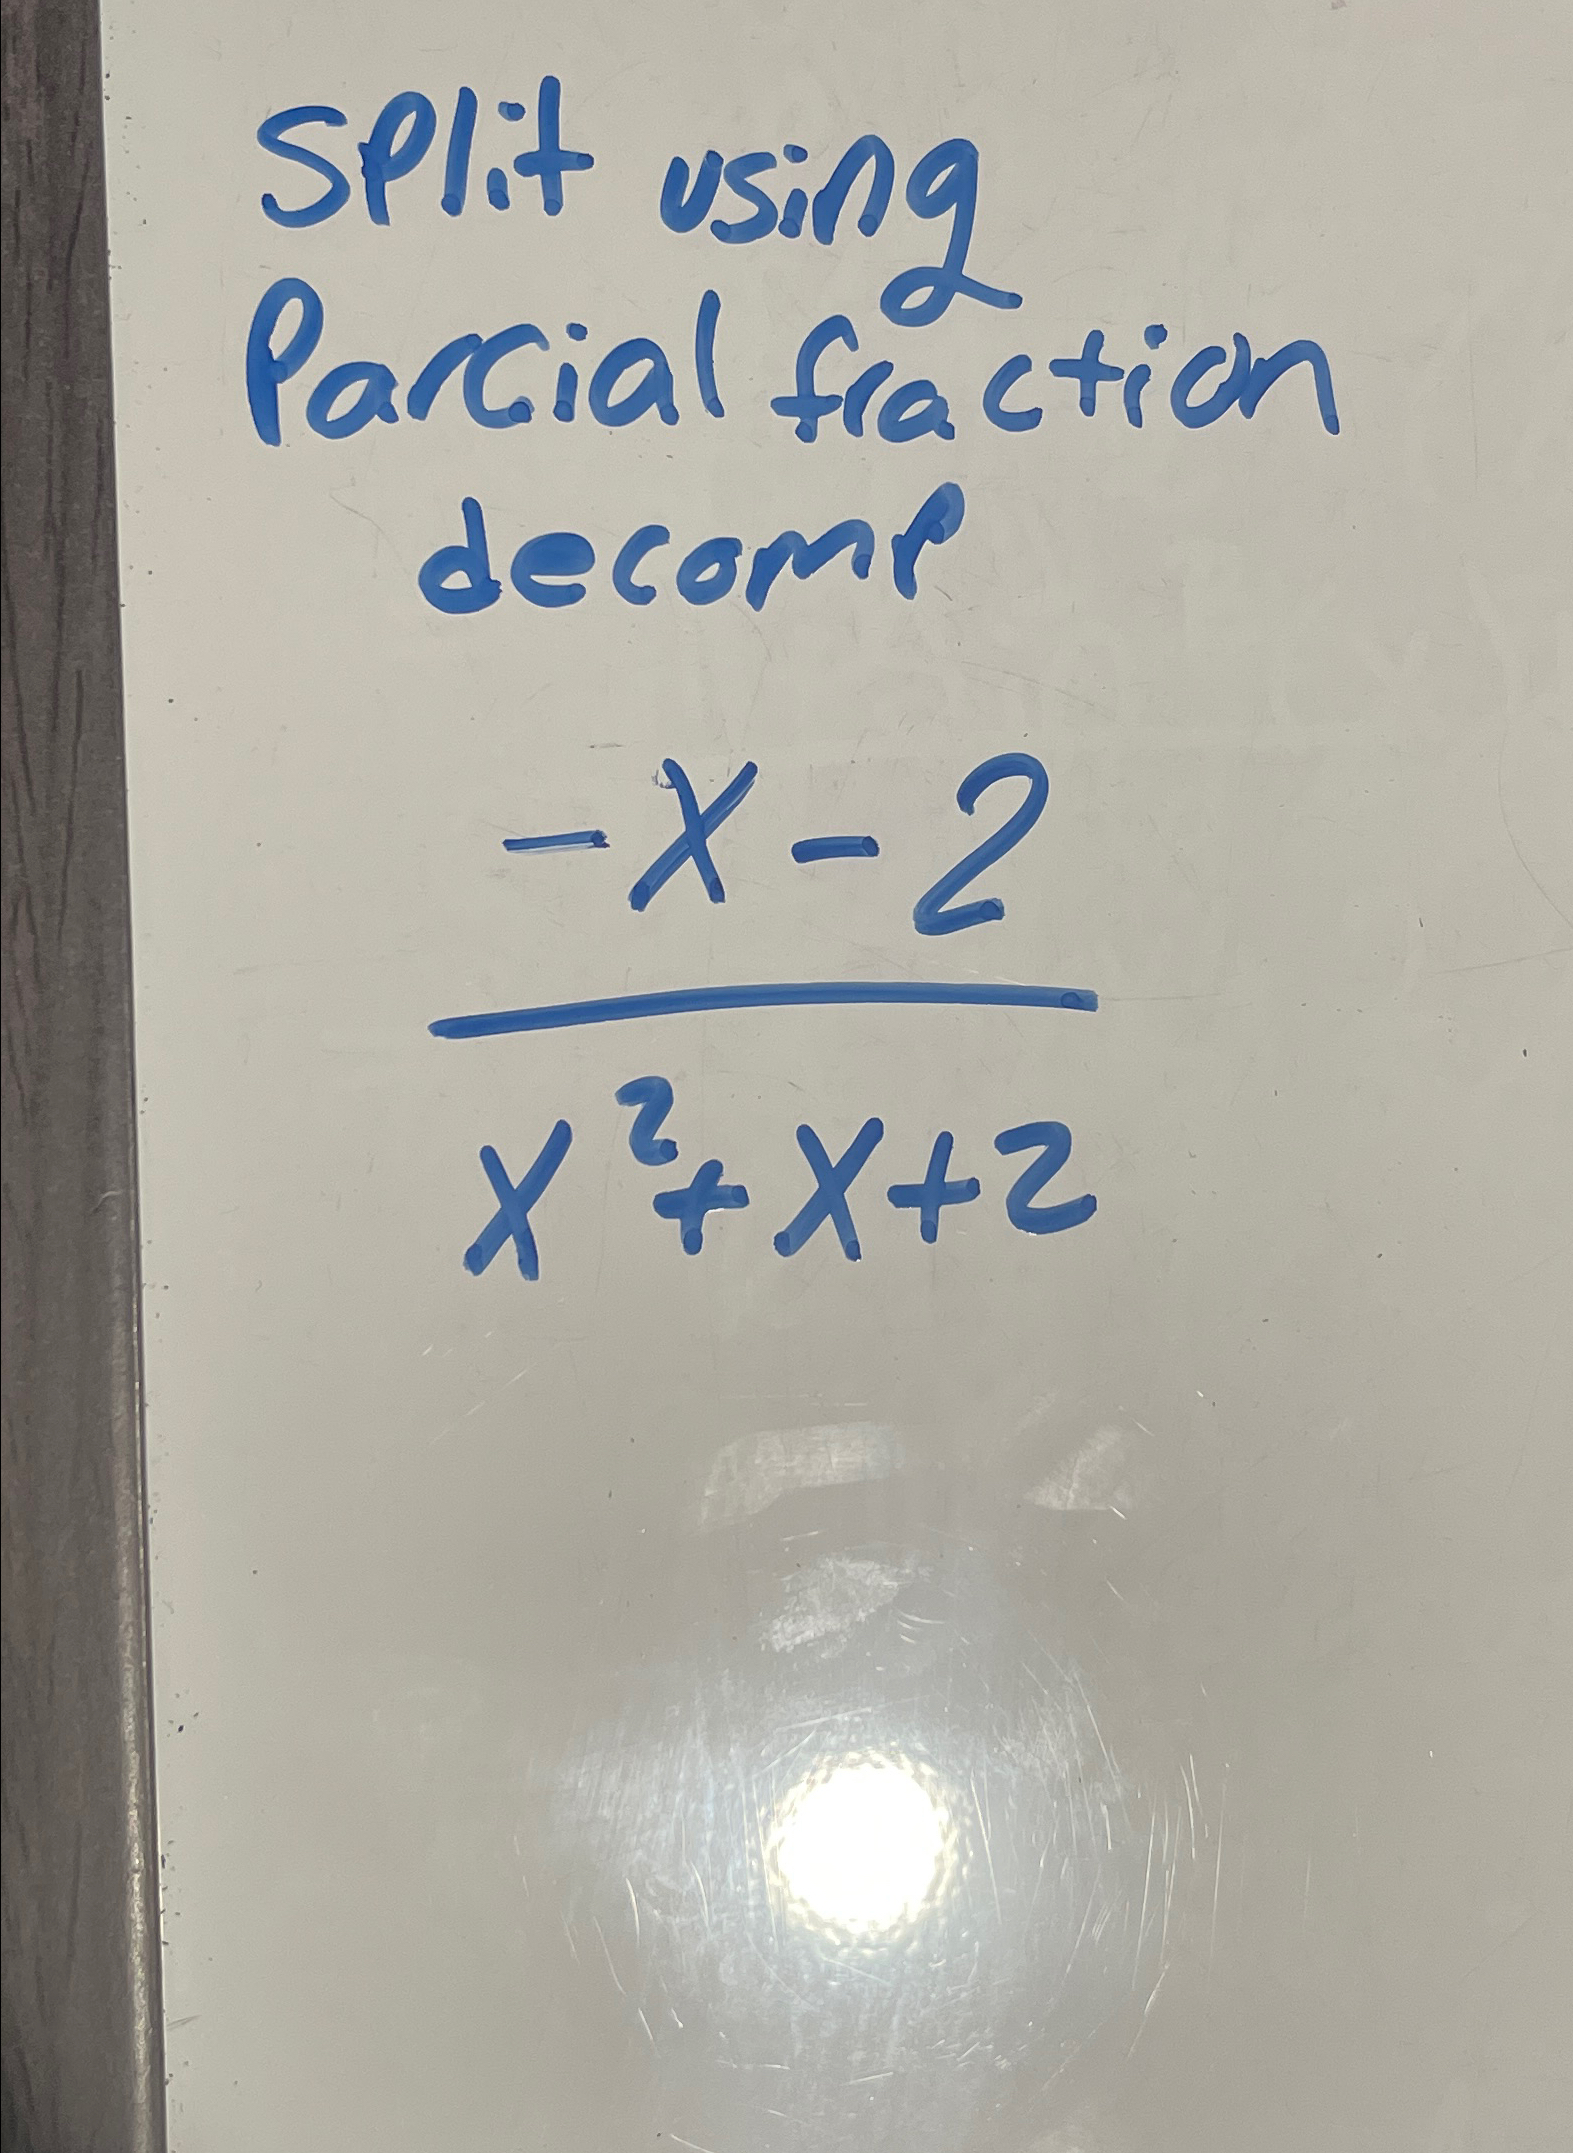 Split using
Parcial fraction
decomp
-x-2
x²+x+2